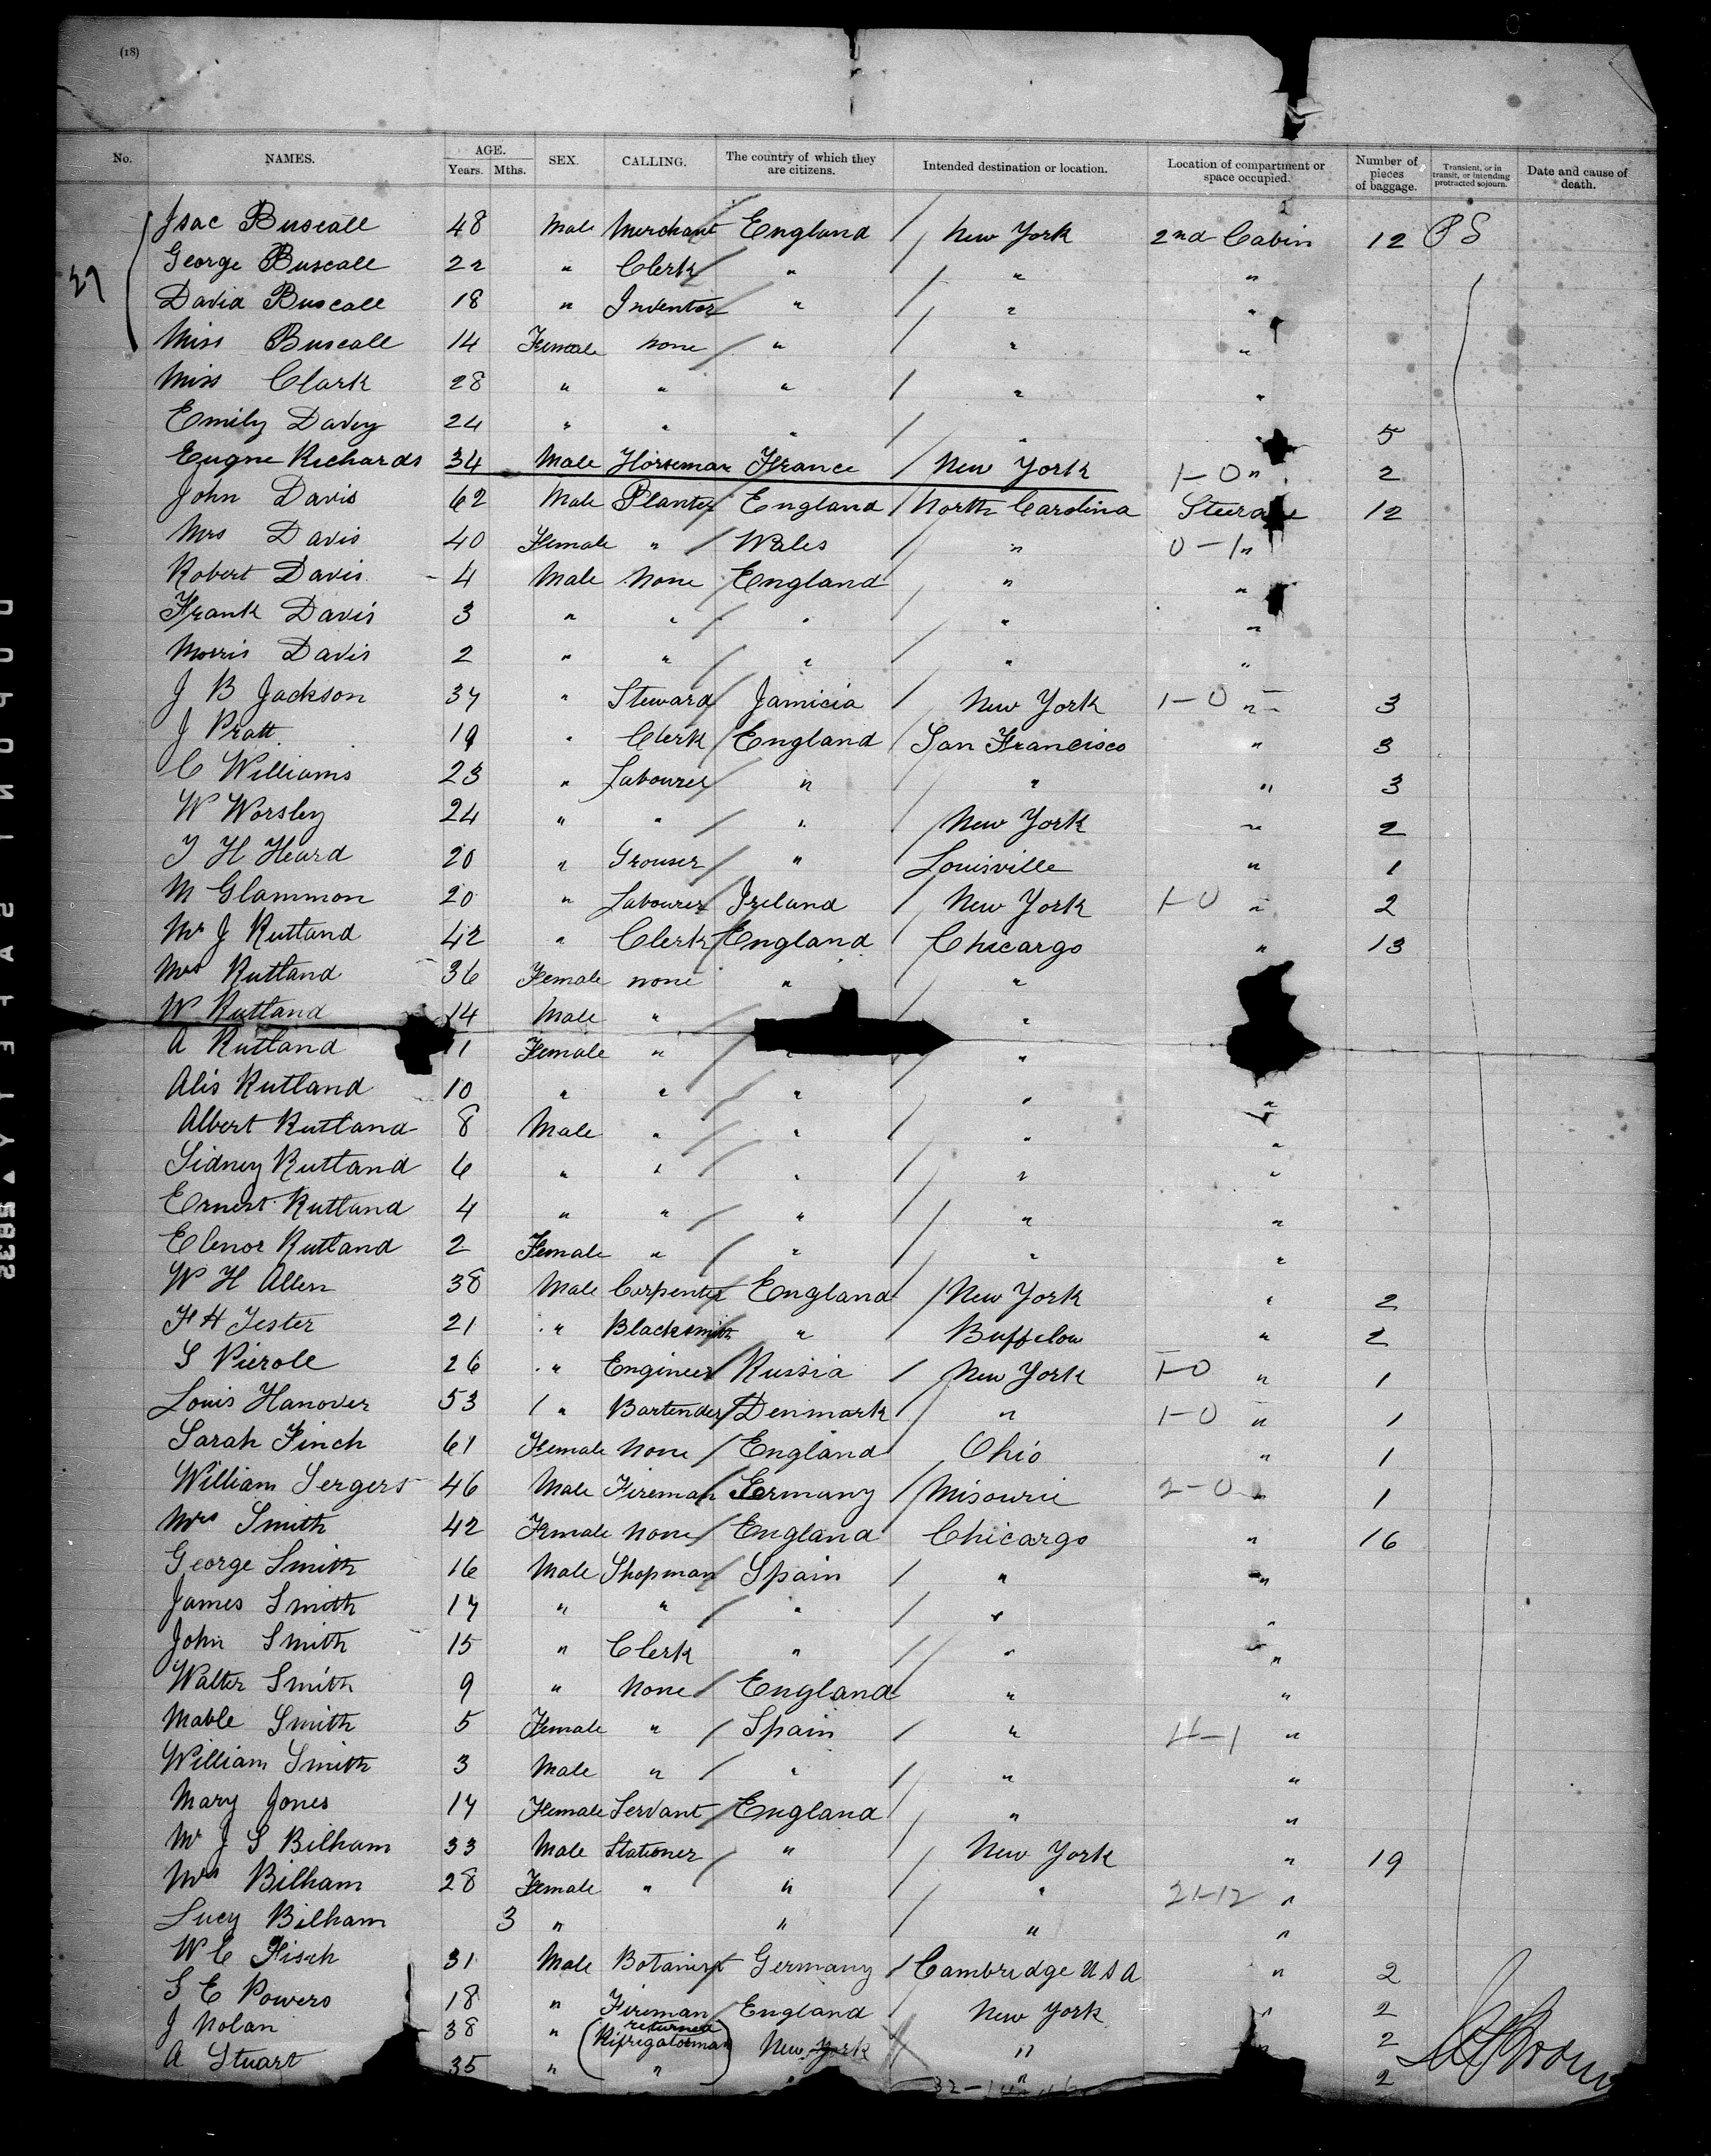 (18)
No. NAMES. AGE. Years. Mths. SEX. CALLING. The country of which they are citizens. Intended destination or location. Location of compartment or space occupied. Number of pieces of baggage. Transient, or in transit, or intending protracted sojourn. Date and cause of death.
Isac Buscall 48 Male Merchant England New York 2nd Cabin 12 P S
George Buscall 22 " Clerk " " "
David Buscall 18 " Inventor " " "
Miss Buscall 14 Female none " " "
Miss Clark 28 " " " " "
Emily Davey 24 " " " " 5
Eugne Richards 34 Male Horseman France New York 1-0 " 2
John Davis 62 Male Planter England North Carolina Steerage 12
Mrs Davis 40 Female " Wales " 0-1 "
Robert Davis 4 Male None England " "
Frank Davis 3 " " " " "
Morris Davis 2 " " " " "
J B Jackson 37 " Steward Jamicia New York 1-0 " 3
J Pratt 19 " Clerk England San Francisco " 3
C Williams 23 " Labourer " " " 3
W Worsley 24 " " " New York " 2
T H Heard 20 " Grouser " Louisville " 1
M Glammon 20 " Labourer Ireland New York 1-0 " 2
Mr J Rutland 42 " Clerk England Chicargo " 13
Mrs Rutland 36 Female none " "
W Rutland 14 Male " "
A Rutland 11 Female " " "
Alis Rutland 10 " " " " "
Albert Rutland 8 Male " " " "
Sidney Rutland 6 " " " " "
Ernest Rutland 4 " " " " "
Elenor Rutland 2 Female " " " "
W H Allen 38 Male Carpenter England New York " 2
F H Jester 21 " Blacksmith " Buffelow " 2
S Pierole 26 " Engineer Russia New York 1-0 " 1
Louis Hanover 53 " Bartender Denmark " 1-0 " 1
Sarah Finch 61 Female None England Ohio " 1
William Sergers 46 Male Fireman Germany Misourie 2-0 " 1
Mrs Smith 42 Female None England Chicargo " 16
George Smith 16 Male Shopman Spain " "
James Smith 17 " " " " "
John Smith 15 " Clerk " " "
Walter Smith 9 " None England " "
Mable Smith 5 Female " Spain " 4-1 "
William Smith 3 Male " " " "
Mary Jones 17 Female Servant England " "
Mr J S Bilham 33 Male Stationer " New York " 19
Mrs Bilham 28 Female " " " 21-12 "
Lucy Bilham 3 " " " "
W C Fisch 31 Male Botanist Germany Cambridge U S A " 2
S E Powers 18 " Fireman England New York " 2
J Nolan 38 " (returned Rifrigatorman New York " " 2
A Stuart 35 " ") " 2